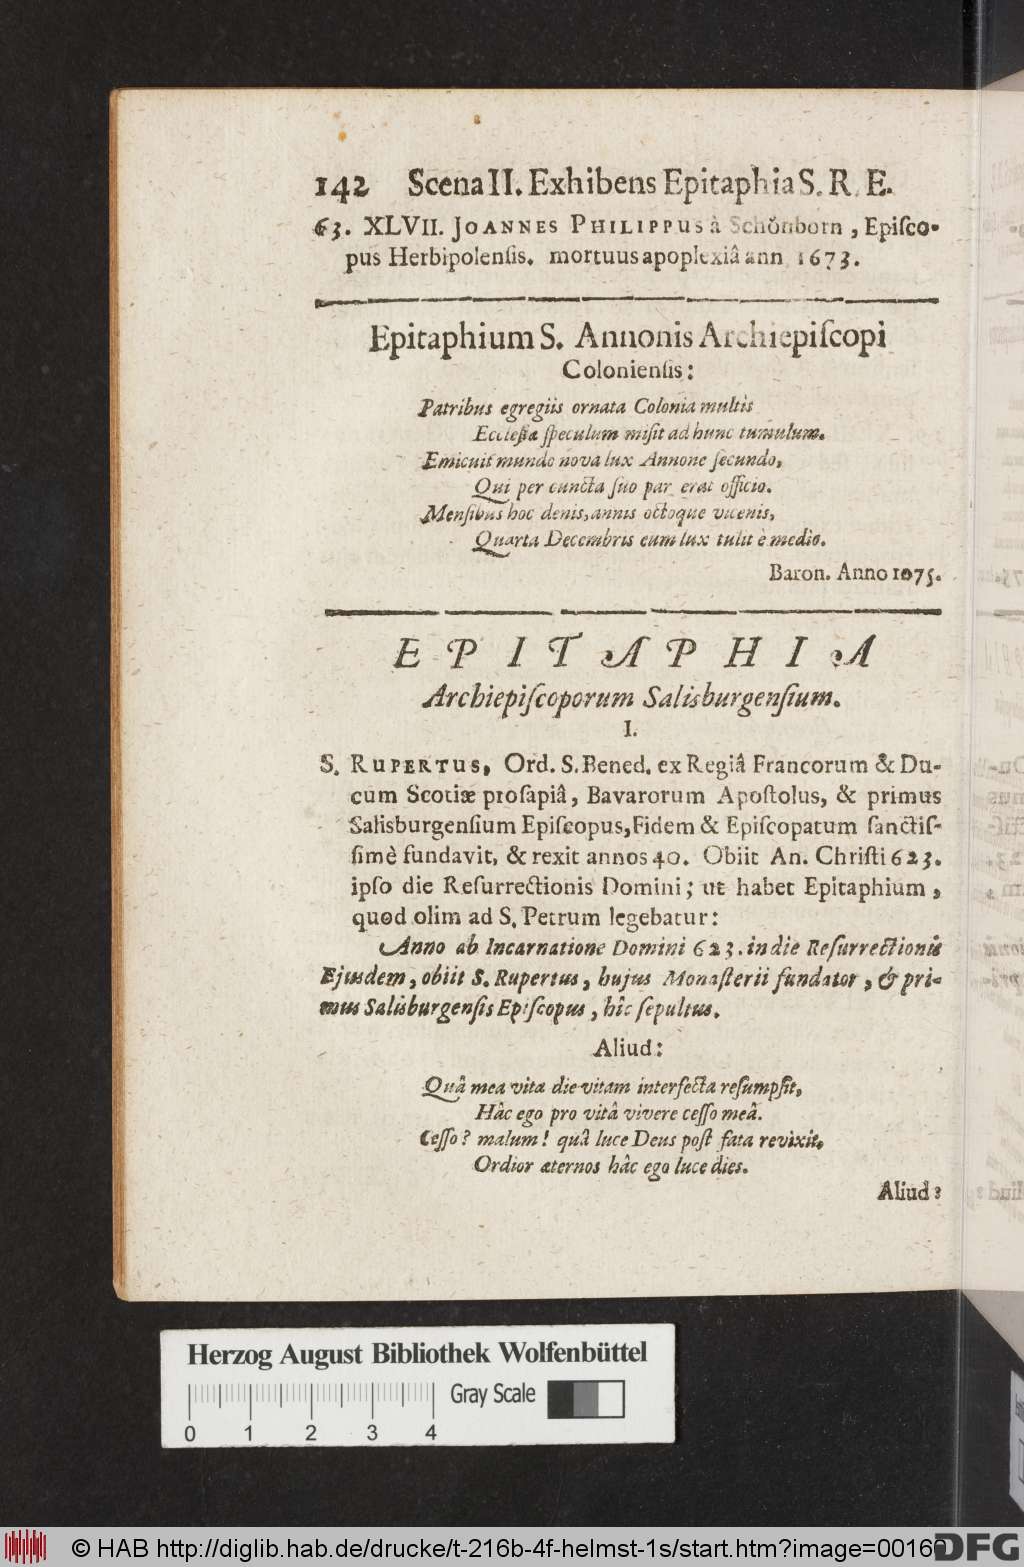 142 Scena II. Exhibens Epitaphia S. R. E.
63. XLVII. JOANNES PHILIPPUS à Schönborn, Episco-
pus Herbipolensis. mortuus apoplexiâ ann 1673.
Epitaphium S. Annonis Archiepiscopi
Coloniensis:
Patribus egregiis ornata Colonia multis
Ecclesiæ speculum misit ad hunc tumulum.
Emicuit mundo nova lux Annone secundo,
Qui per cuncta suo par erat officio.
Mensibus hoc denis, annis octoque vicenis,
Quarta Decembris eum lux tulit è medio.
Baron. Anno 1075.
EPITAPHIA
Archiepiscoporum Salisburgensium.
I.
S. RUPERTUS, Ord. S. Bened. ex Regiâ Francorum & Du-
cum Scotiæ prosapiâ, Bavarorum Apostolus, & primus
Salisburgensium Episcopus, Fidem & Episcopatum sanctis-
simè fundavit, & rexit annos 40. Obiit An. Christi 623.
ipso die Resurrectionis Domini; ut habet Epitaphium,
quod olim ad S. Petrum legebatur:
Anno ab Incarnatione Domini 623. in die Resurrectionis
Ejusdem, obiit S. Rupertus, hujus Monasterii fundator, & pri-
mus Salisburgensis Episcopus, hîc sepultus.
Aliud:
Quâ mea vita die vitam interfecta resumpsit,
Hâc ego pro vitâ vivere cesso meâ.
Cesso? malum! quâ luce Deus post fata revixit,
Ordior æternos hâc ego luce dies.
Aliud:
Herzog August Bibliothek Wolfenbüttel
Gray Scale
0 1 2 3 4
© HAB http://diglib.hab.de/drucke/t-216b-4f-helmst-1s/start.htm?image=00160
DFG